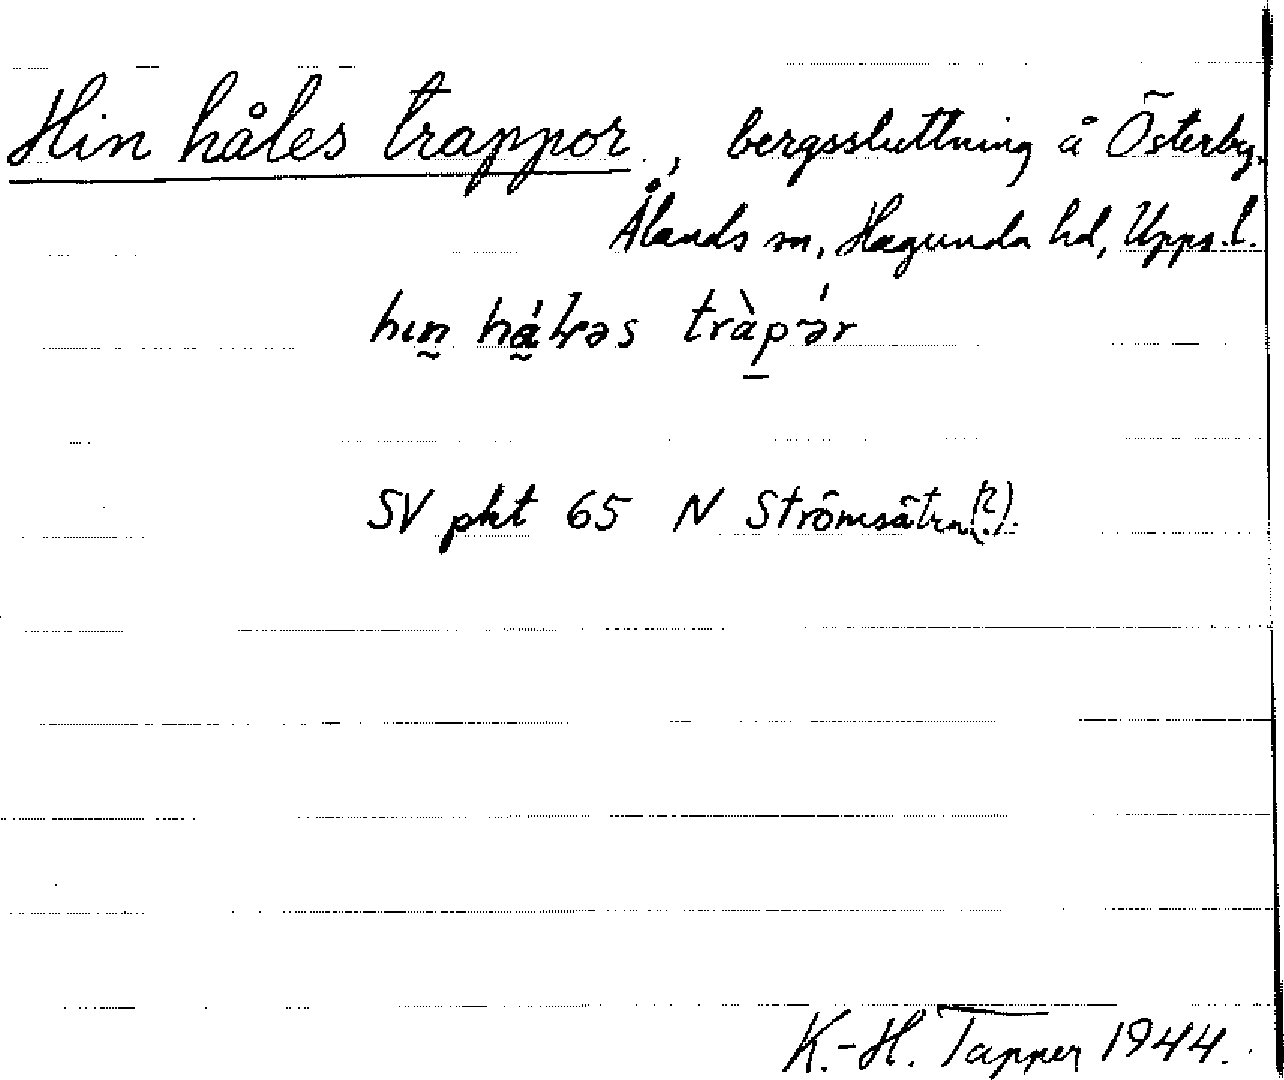 Hin håles trappor, bergssluttning å Österby,
Ålands sn, Hagunda hd, Upps. l.
hın̰ há̰ɫəs tràp̠-ə́r
SV pkt 65 N Strömsätra(?).
K.-H. Tapper 1944.